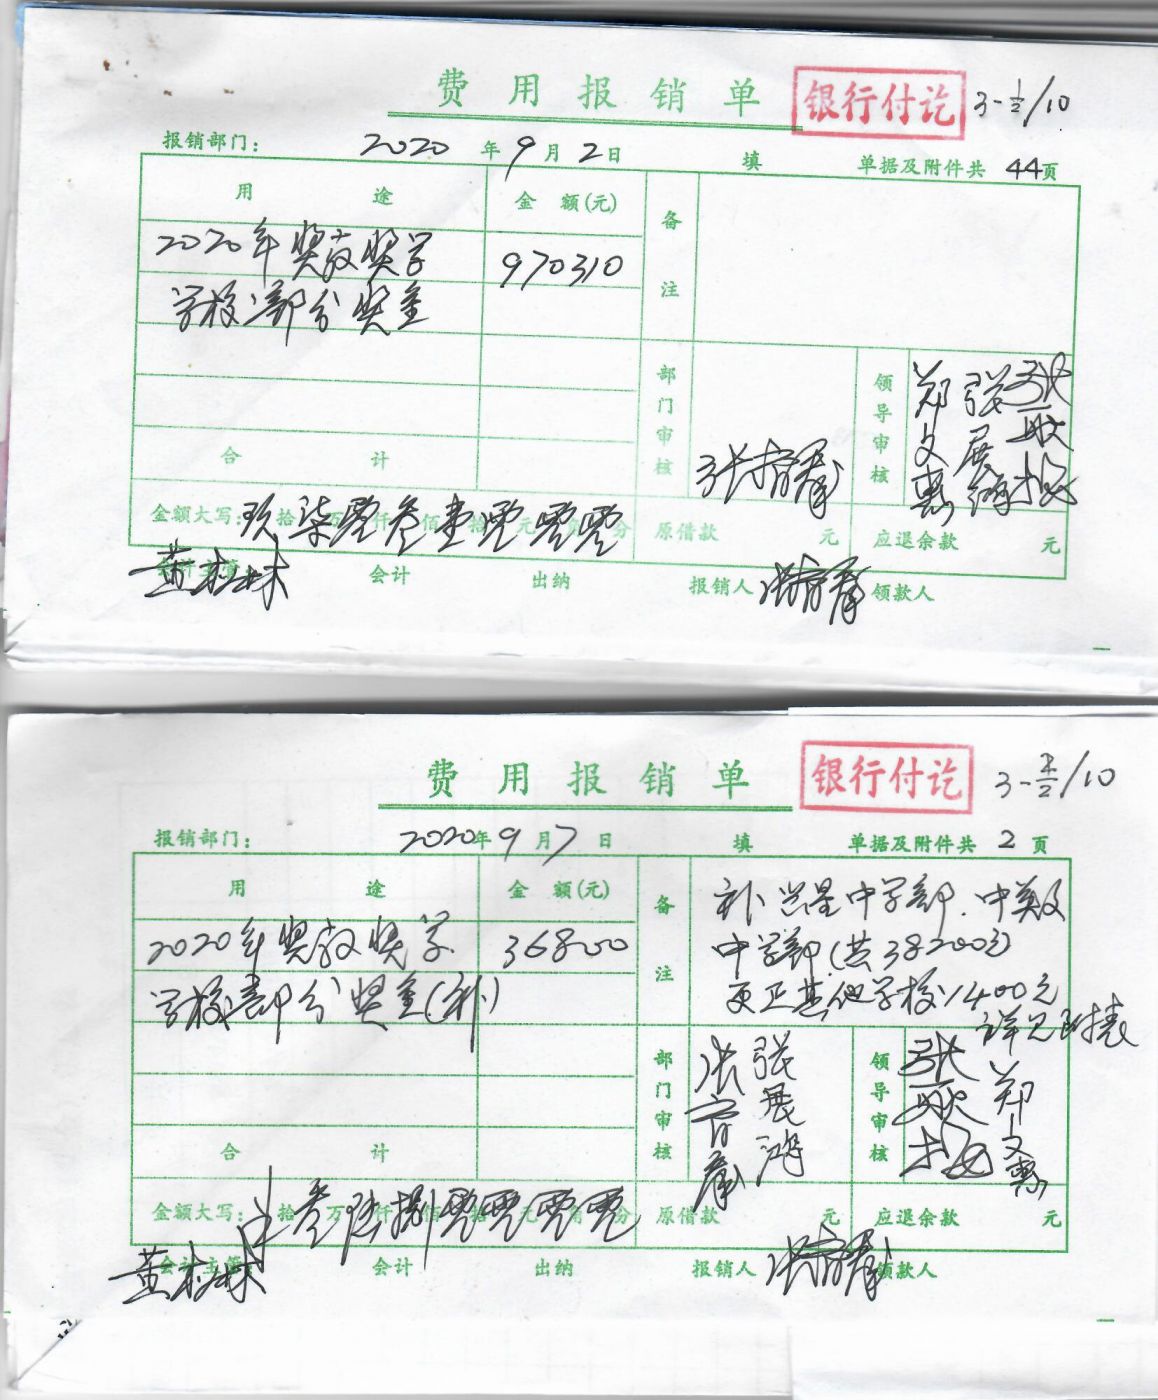 费用报销单 银行付讫 3-½/10
报销部门： 2020年9月2日 填 单据及附件共44页
用途 金额(元) 备注
2020年奖教奖学 970310
学校部分奖金
部门审核 领导审核
郑文惠 张展鸿
合计
金额大写： 玖拾柒万零仟叁佰壹拾零元零角零分 原借款 元 应退余款 元
会计 出纳 报销人 领款人
费用报销单 银行付讫 3-2/2/10
报销部门： 2020年9月7日 填 单据及附件共2页
用途 金额(元) 备注
补兴星中学部、中英文
中学部(共38200元)
2020年奖教奖学 36800
学校部分奖金(补)
更正其他学校1400元
详见附表
部门审核 张展鸿 领导审核 郑文惠
合计
金额大写： 拾叁万陆仟捌佰零拾零元零角零分 原借款 元 应退余款 元
会计主管 会计 出纳 报销人 领款人